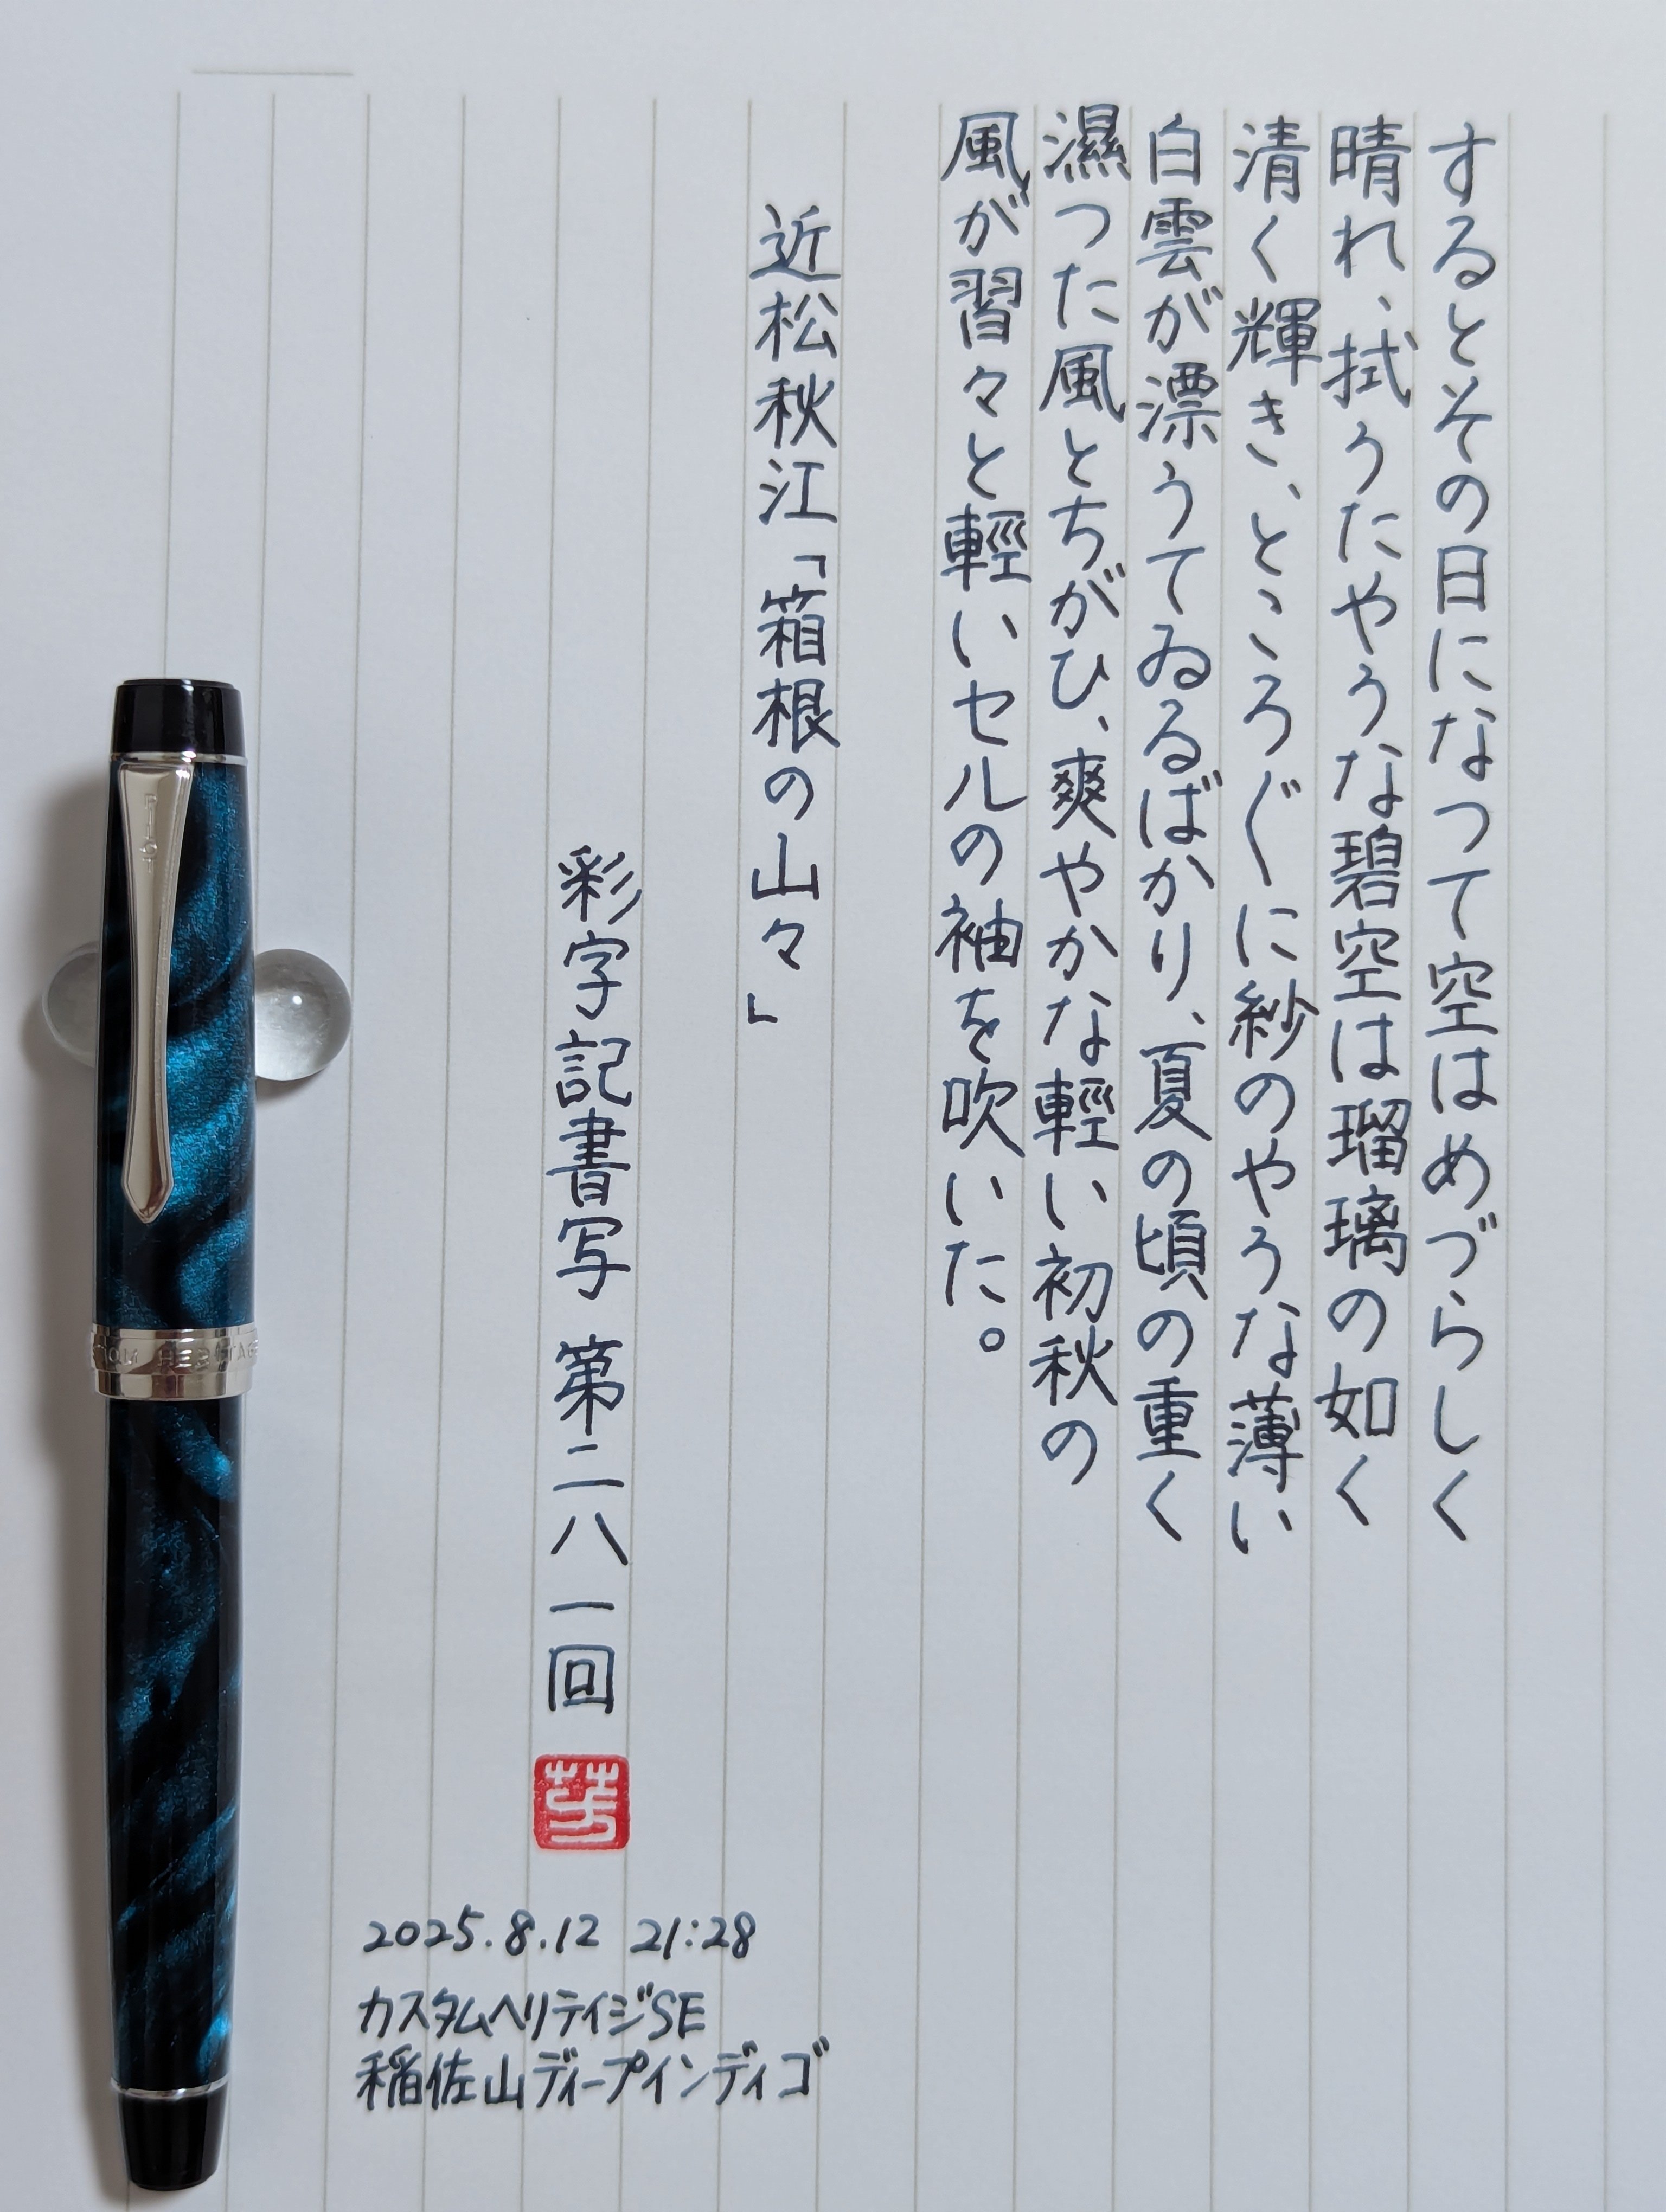 するとその日になつて空はめづらしく
晴れ、拭うたやうな碧空は瑠璃の如く
清く輝き、ところ〴〵に紗のやうな薄い
白雲が漂うてゐるばかり、夏の頃の重く
濕つた風とちがひ、爽やかな輕い初秋の
風が習々と輕いセルの袖を吹いた。
近松秋江「箱根の山々」
彩字記書写 第二八一回
2025.8.12 21:28
カスタムヘリテイジSE
稲佐山ディープインディゴ
PILOT